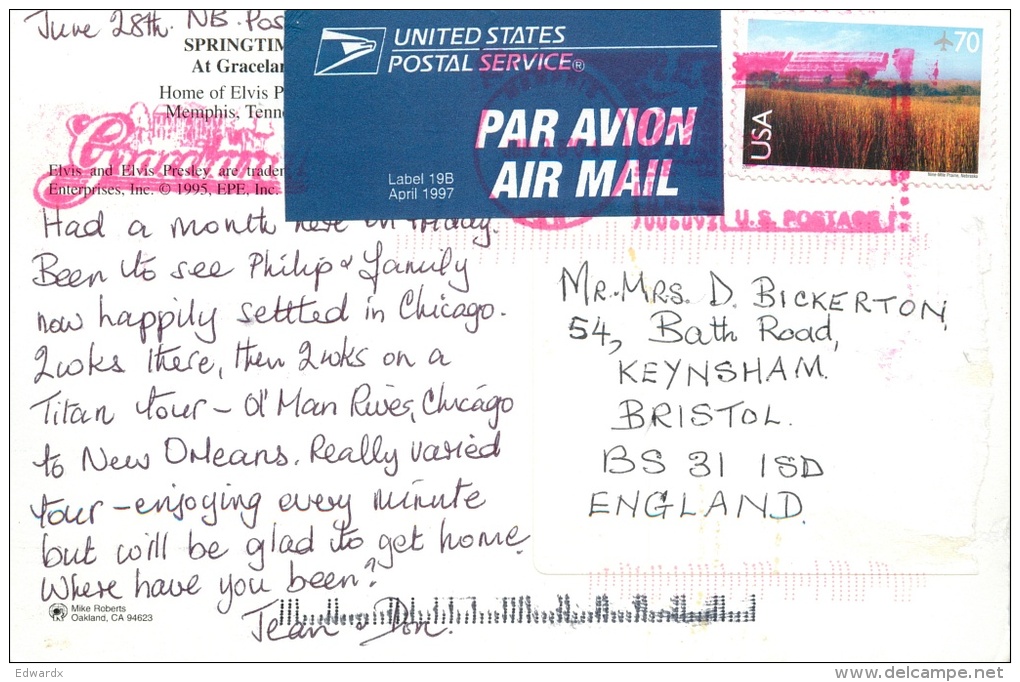 June 28th. NB. Pos
SPRINGTIM
At Gracelan
Home of Elvis P
Memphis, Tenn
Graceland
Elvis and Elvis Presley are tradem
Enterprises, Inc. © 1995, EPE, Inc.
UNITED STATES
POSTAL SERVICE®
PAR AVION
AIR MAIL
Label 19B
April 1997
70
USA
Nine-Mile Prairie, Nebraska
U.S. POSTAGE
Had a month here on Friday.
Been to see Philip & family
now happily settled in Chicago.
2 wks there, then 2 wks on a
Titan tour – Ol' Man River, Chicago
to New Orleans. Really varied
tour – enjoying every minute
but will be glad to get home.
Where have you been?
Jean & Don.
Mr. Mrs. D. BICKERTON,
54, Bath Road,
KEYNSHAM.
BRISTOL.
BS 31 1SD
ENGLAND.
Mike Roberts
Oakland, CA 94623
Edwardx
www.delcampe.net